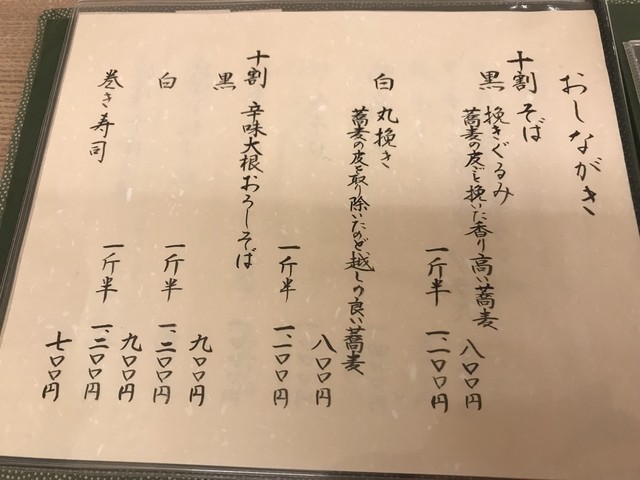 おしながき
十割そば
黒 挽きぐるみ
蕎麦の皮ごと挽いた香り高い蕎麦
八〇〇円
一斤半 一、一〇〇円
白 丸挽き
蕎麦の皮を取り除いたのど越しの良い蕎麦
八〇〇円
一斤半 一、一〇〇円
十割 辛味大根おろしそば
黒
九〇〇円
一斤半 一、二〇〇円
白
九〇〇円
一斤半 一、二〇〇円
巻き寿司
七〇〇円